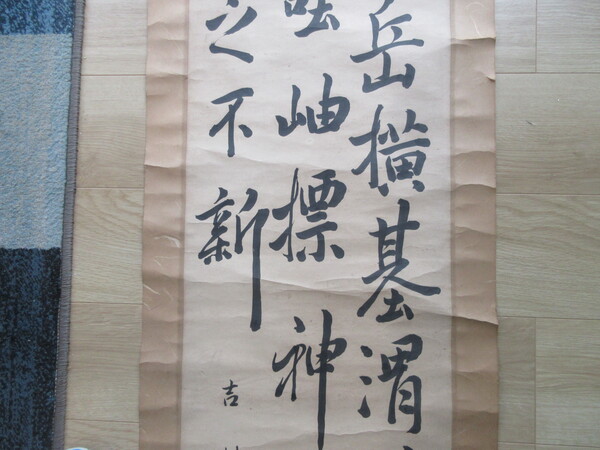 岳横基渭
岫標神
之不新
吉